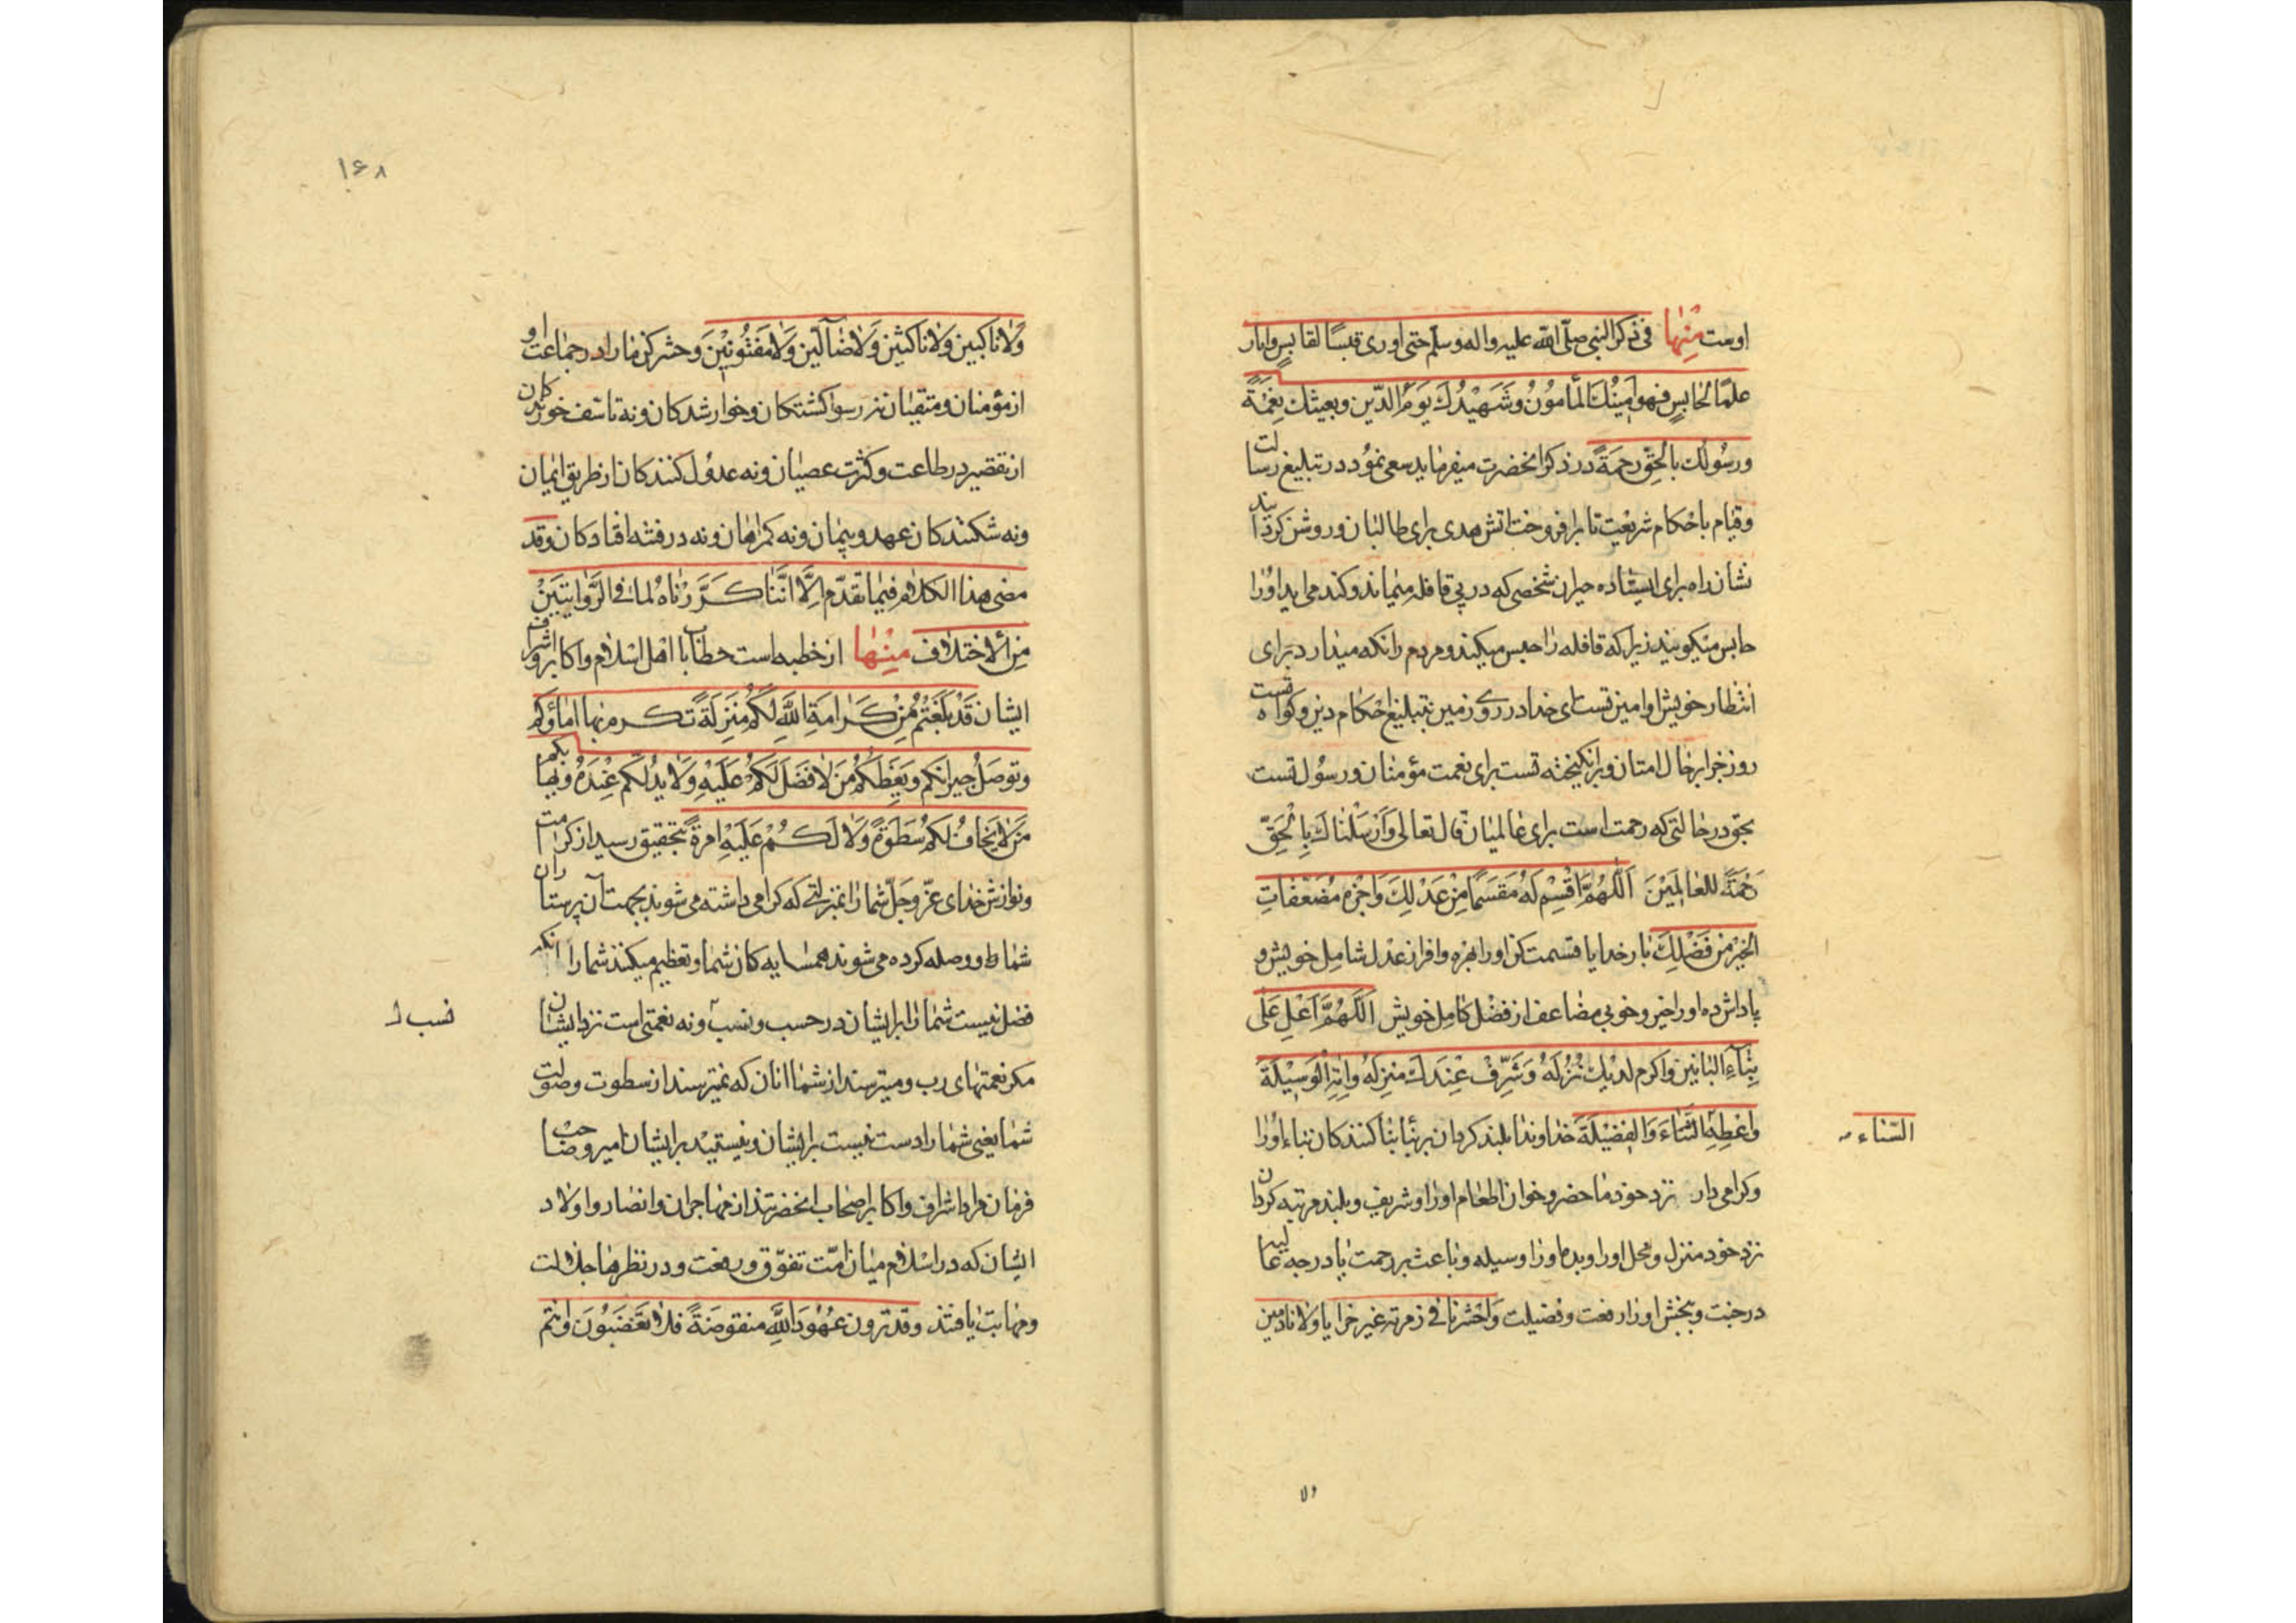 اوست منها فی ذکر النبی صلّی الله علیه واله وسلّم حتی اوری قبسًا لقابسٍ وانار
علمًا لحابسٍ فهو امینُک المأمُونُ وشَهیدُکَ یَومُ الدّین وبعیثک نِعْمَةً
ورسُولُک بالحَقّ رحمَةً در ذکر انحضرت میفرماید سعی نمود در تبلیغ رسالت
وقیام باحکام شریعت تا برافروخت اتش هدی برای طالبان وروشن کردانید
نشان راه برای ایستاده حیران شخصی که در پی قافله میماند وکند می اید اورا
حابس میکویند زیرا که قافله را حبس میکند ومردم را نکه میدارد برای
انتظار خویش او امین تست ای خدا در روی زمین بتبلیغ احکام دین وکواه تست
روز جزا بر حال امتان وبرانکیخته تست برای نعمت مؤمنان ورسُول تست
بحق در حالتی که رحمت است برای عالمیان قال تعالی وَارْسَلْنَاکَ بِالْحَقّ
رَحْمَةً للعَالَمِیْنَ اَللّهُمَّ اقْسِمْ لَهُ مَقسَمًا مِنْ عَدْلِکَ وَاجْزِه مُضَعَّفَاتِ
الخَیْرِ مِن فَضْلِکَ بار خدایا قسمت کن اورا بهره وافر از عدل شامل خویش و
پاداش ده اورا خیر وخوبی مضاعف از فضل کامل خویش اَللّهُمَّ اَعْلِ عَلَی
بِنَاءِ البَانِین واکرم لدیْک نُزُلَهُ وَشَرِّفْ عِنْدَکَ منزِلَهُ وَاتِهِ الْوَسِیْلَةَ
وَاعْطِهِ السَّنَاءَ وَالفَضیْلَةَ خداوندا بلند کردان بر بنا بنا کنندکان بناء اورا
السّناء
وکرامی دار نزد خود ما حضر وخوان طعام اورا وشریف وبلند مرتبه کردان
نزد خود منزل ومحل اورا وبده اورا وسیله وباعث بر رحمت یا درجه عالیه
در جنت وببخش اورا رفعت وفضیلت وَاحْشُرنا فی زمرته غیر خزایا ولا نادمین
ولا
۱۶۸
وَلَا نَاکِبین وَلَا نَاکثین وَلَا ضَآلّین وَلَا مَفتُونِیْنَ وحشر کن مارا در جماعت او
از مؤمنان ومتقیان نه رسوا کشتکان وخوار شدکان ونه تاسّف خورندکان
از تقصیر در طاعت وکثرت عصیان ونه عدوُل کنندکان از طریق ایمان
ونه شکنندکان عهد وپیمان ونه کمراهان ونه در فتنه افتادکان وقد
مضی هذا الکلام فیما تقدّم اِلَّا انَّنَا کَرَّرْنَاهُ لما فی الرّوایَتَیْنْ
مِنَ الاختلاف مِنْهَا از خطبه است خطاب با اهل اسلام واکابر واشراف
ایشان قَدْ بَلَغتُمْ مِنْ کَرامَةِ اللَّهِ لَکُمْ مَنْزِلَةً تکرم بها اماؤکم
وتوصَلُ جیرانکم ویَعَظّمُکُمْ مَنْ لَا فَضَلَ لَکُمْ عَلَیْهِ وَلَا یَدُ لَکُم عِنْدَهُ ویهابکم
مَنْ لَا یَخَافُ لَکُمْ سَطوَةً وَلَا لَکُمْ عَلَیْهِ امرةٌ بتحقیق رسید از کرامت
ونوازش خدای عزّ وجَلّ شمارا بمنزلتی که کرامی داشته می شوند بجهت آن پرستاران
شما و وصله کرده می شوند همسایه کان شما وتعظیم میکنند شمارا انکه
فضل نیست شمارا بر ایشان در حسب ونسب ونه نعمتی است نزد ایشان
نسب
مکر نعمتهای رب ومیترسند از شما انان که نمیترسند از سطوت وصولت
شما یعنی شمارا دست نیست بر ایشان ونیستید بر ایشان امیر وصاحب
فرمان مراد اشراف واکابر اصحاب انحضرتند از مهاجران وانصار واولاد
ایشان که در اسلام میان امّت تفوّق ورفعت ودر نظرها جلالت
ومهابت یافتند وقد ترون عُهُودَ اللَّهِ منقوضَةً فلا تَغْضَبُونَ وانتم